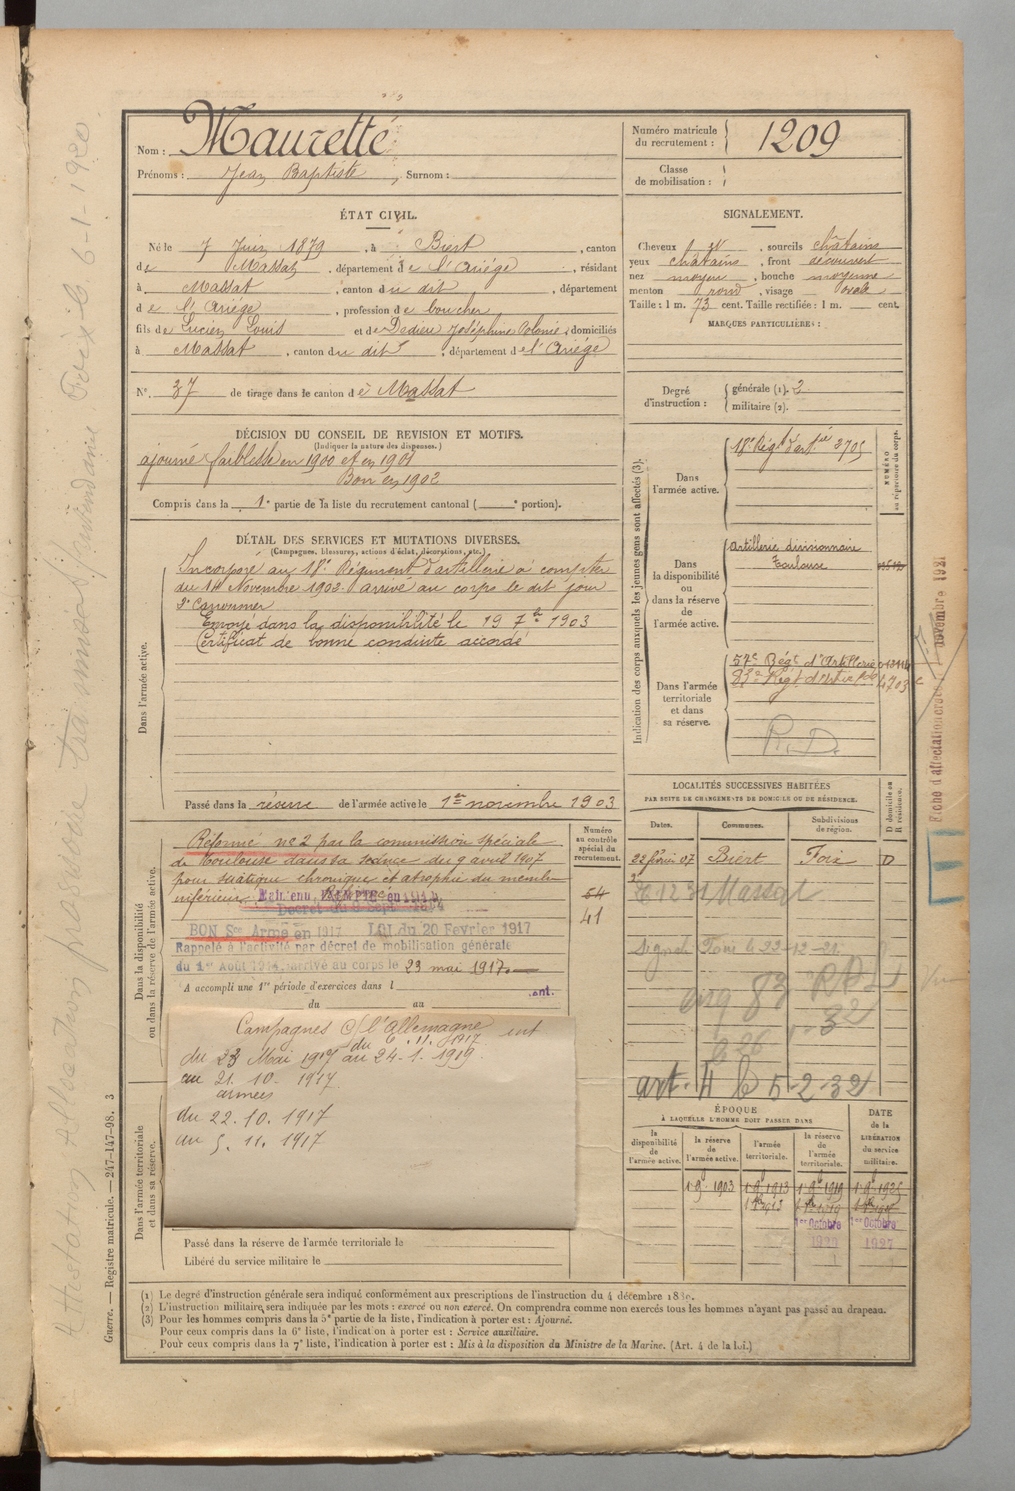 Nom : Maurette
Prénoms : Jean Baptiste , Surnom :
Numéro matricule du recrutement : 1209
Classe de mobilisation :
ÉTAT CIVIL.
Né le 7 Juin 1879 , à Biert , canton
de Massat , département de l'Ariége , résidant
à Massat , canton du dit , département
de l'Ariége , profession de boucher
fils de Lucien Louis et de Dedieu Joséphine , domiciliés
à Massat , canton du dit , département de l'Ariége
N°. 37 de tirage dans le canton de Massat
SIGNALEMENT.
Cheveux , sourcils châtains
yeux châtains , front découvert
nez moyen , bouche moyenne
menton rond , visage ovale
Taille : 1 m. 73 cent. Taille rectifiée : 1 m. cent.
MARQUES PARTICULIÈRES :
Degré d'instruction : générale (1). 3
militaire (2).
DÉCISION DU CONSEIL DE REVISION ET MOTIFS.
(Indiquer la nature des dispenses.)
ajourné faiblesse en 1900 et en 1901
Bon en 1902
Compris dans la 1e partie de la liste du recrutement cantonal ( e portion).
DÉTAIL DES SERVICES ET MUTATIONS DIVERSES.
(Campagnes, blessures, actions d'éclat, décorations, etc.)
Dans l'armée active.
Incorporé au 18e Régiment d'artillerie à compter
du 14 Novembre 1902. arrivé au corps le dit jour
2e Canonnier
Envoyé dans la disponibilité le 19 7bre 1903
Certificat de bonne conduite accordé
Passé dans la réserve de l'armée active le 1er novembre 1903
Indication des corps auxquels les jeunes gens sont affectés (3).
NUMÉRO au répertoire du corps.
Dans l'armée active.
18e Régt d'artie 3705
Dans la disponibilité ou dans la réserve de l'armée active.
Artillerie divisionnaire
Toulouse
Dans l'armée territoriale et dans sa réserve.
57e Régt d'Artillerie
4703
R. D.
Dans la disponibilité ou dans la réserve de l'armée active.
Réformé no 2 par la commission spéciale
de Toulouse dans sa séance du 9 avril 1907
pour sciatique chronique et atrophie du membre
inférieur
Maintenu EXEMPTÉ en 1914
Décret du 9 Sept. 1914
BON Sce Armé en 1917 LOI du 20 Fevrier 1917
Rappelé à l'activité par décret de mobilisation générale
du 1er Août 1914, arrivé au corps le 23 mai 1917
A accompli une 1re période d'exercices dans l
du au
Numéro au contrôle spécial du recrutement.
54
41
Campagnes C/ l'Allemagne int
du 6. 11. 1917
du 23 Mai 1917 au 24. 1. 1919
au 21. 10. 1917
armées
du 22. 10. 1917
au 5. 11. 1917
Dans l'armée territoriale et dans sa réserve.
Passé dans la réserve de l'armée territoriale le
Libéré du service militaire le
LOCALITÉS SUCCESSIVES HABITÉES
PAR SUITE DE CHANGEMENTS DE DOMICILE OU DE RÉSIDENCE.
Dates. Communes. Subdivisions de région. D domicile ou R résidence.
22 févrie 07 Biert Foix D
Massat
Signalé Foix le 23-12-21
art. 4 le 5-2-32
ÉPOQUE
À LAQUELLE L'HOMME DOIT PASSER DANS
la disponibilité de l'armée active.
la réserve de l'armée active.
l'armée territoriale.
la réserve de l'armée territoriale.
DATE de la LIBÉRATION du service militaire.
1 9b 1903 1 9b 1913 1 9b 1919 1 9b 1925
1er Octobre 1920 1er Octobre 1927
(1) Le degré d'instruction générale sera indiqué conformément aux prescriptions de l'instruction du 4 décembre 1889.
(2) L'instruction militaire sera indiquée par les mots : exercé ou non exercé. On comprendra comme non exercés tous les hommes n'ayant pas passé au drapeau.
(3) Pour les hommes compris dans la 5e partie de la liste, l'indication à porter est : Ajourné.
Pour ceux compris dans la 6e liste, l'indication à porter est : Service auxiliaire.
Pour ceux compris dans la 7e liste, l'indication à porter est : Mis à la disposition du Ministre de la Marine. (Art. 4 de la loi.)
Guerre. — Registre matricule. — 247-147-98. 3
Attestation Allocation provisoire transmise à Intendance Foix le 6-1-1922
Fiche d'affectation créée novembre 1921